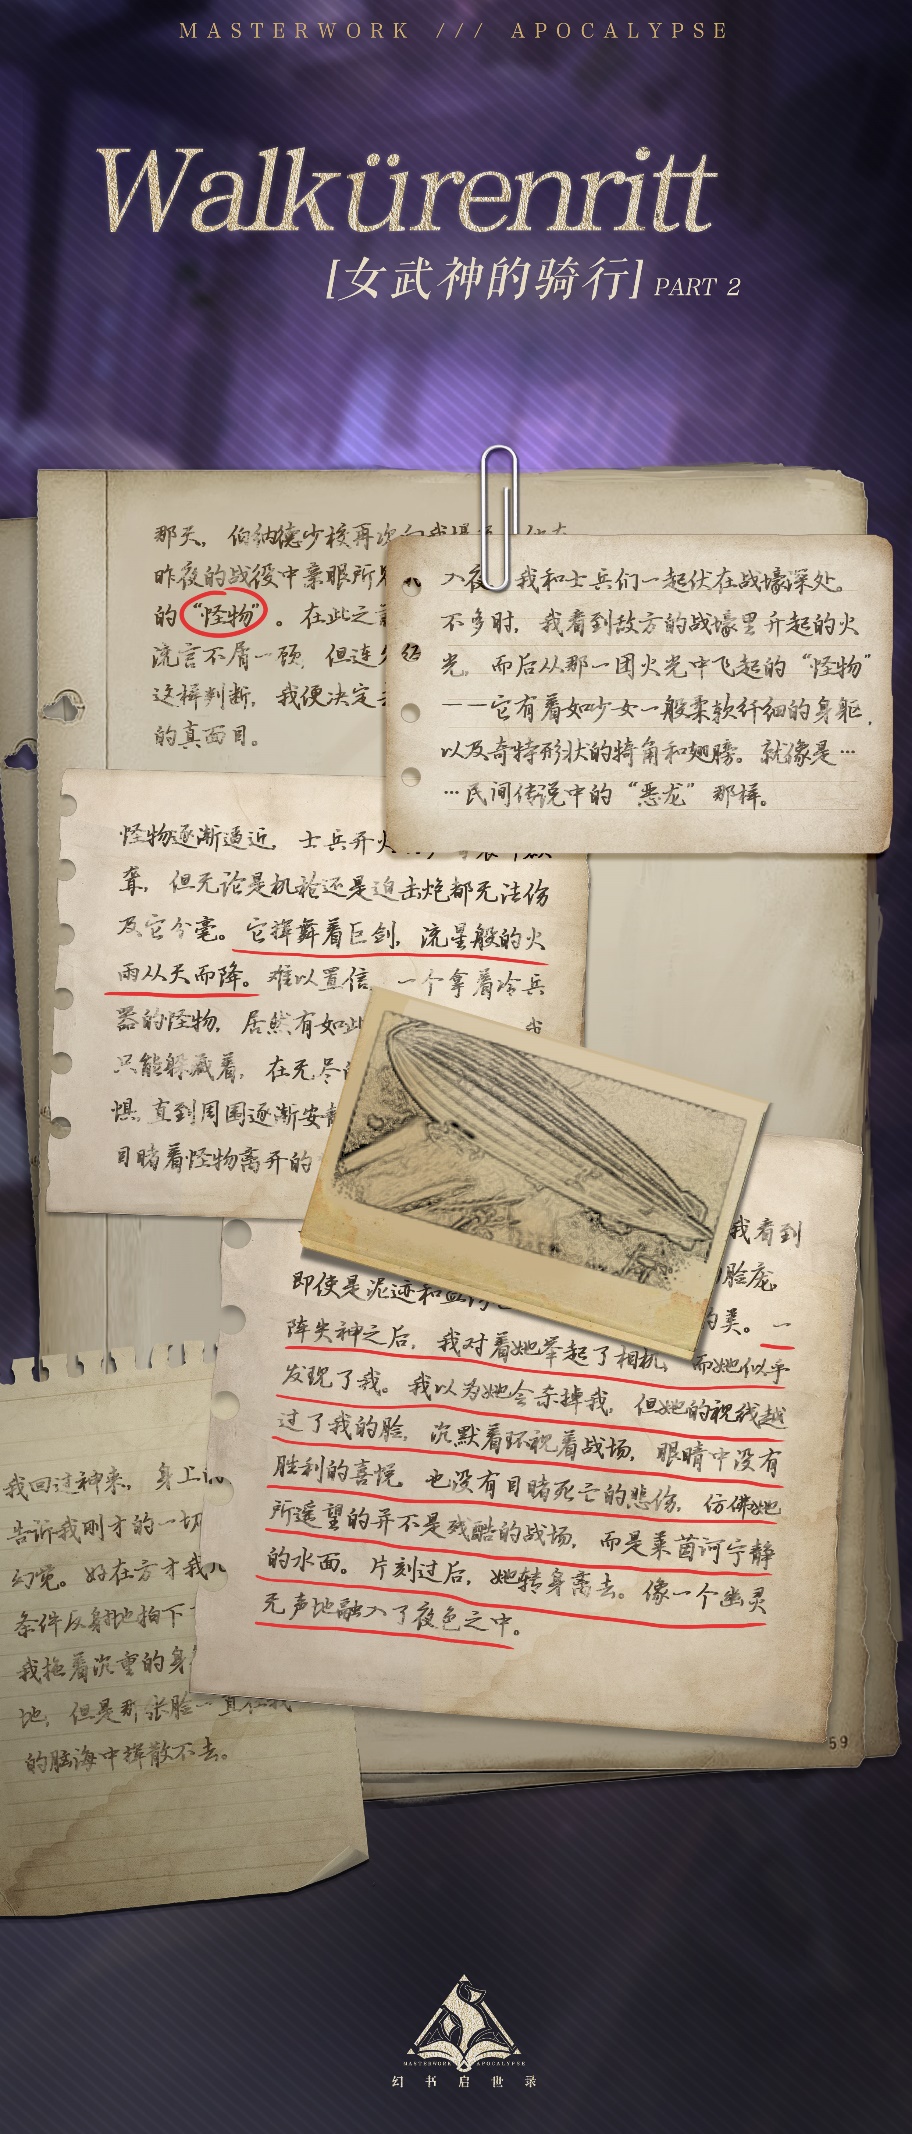 MASTERWORK /// APOCALYPSE
Walkürenritt
[女武神的骑行] PART 2
那天，伯纳德少校再次
昨夜的战役中亲眼所
的“怪物”。在此之
流言不屑一顾，但连
这样判断，我便决定
的真面目。
入夜 我和士兵们一起伏在战壕深处。
不多时，我看到敌方的战壕里升起的火
光，而后从那一团火光中飞起的“怪物”
——它有着如少女一般柔软纤细的身躯，
以及奇特形状的犄角和翅膀。就像是…
…民间传说中的“恶龙”那样。
怪物逐渐逼近，士兵开火
聋，但无论是机枪还是迫击炮都无法伤
及它分毫。它挥舞着巨剑，流星般的火
雨从天而降。难以置信，一个拿着冷兵
器的怪物，居然有如此 我
只能躲藏着，在无尽
惧，直到周围逐渐安静
目睹着怪物离开的
我看到
即使是泥迹和血 脸庞，
的美。一
阵失神之后，我对着她举起了相机，而她似乎
发现了我。我以为她会杀掉我，但她的视线越
过了我的脸，沉默着环视着战场，眼睛中没有
胜利的喜悦，也没有目睹死亡的悲伤，仿佛她
所遥望的并不是残酷的战场，而是莱茵河宁静
的水面。片刻过后，她转身离去。像一个幽灵
无声地融入了夜色之中。
我回过神来，身上
告诉我刚才的一切
幻觉。好在方才我
条件反射地拍下
我拖着沉重的身
地，但是那张脸一直在我
的脑海中挥散不去。
59
MASTERWORK APOCALYPSE
幻书启世录